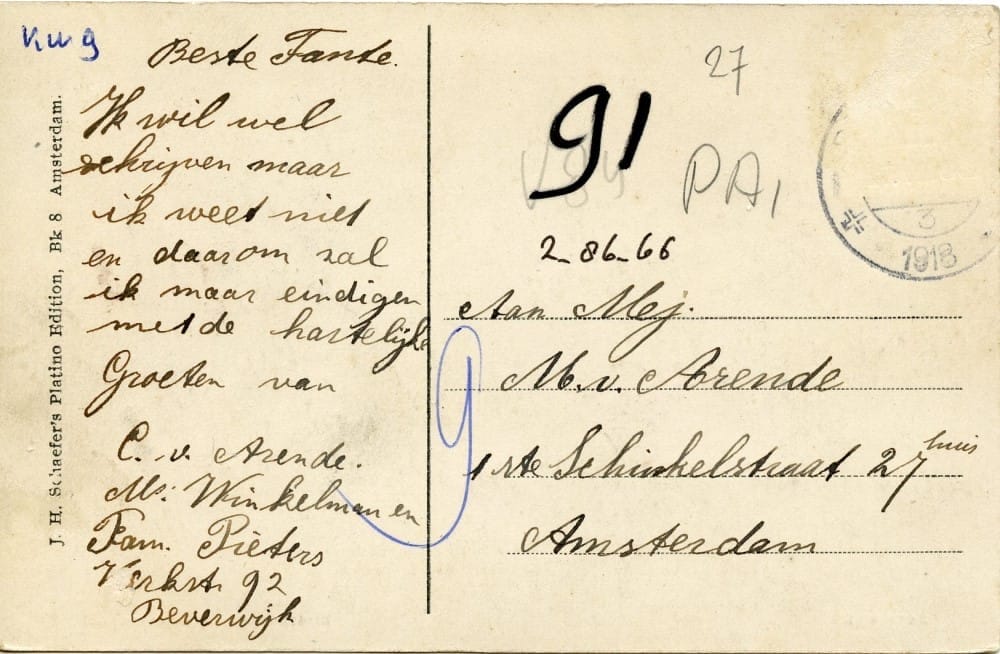 Beste Tante.
Ik wil wel
schrijven maar
ik weet niet
en daarom zal
ik maar eindigen
met de hartelijke
Groeten van
C. v. Arende.
Mej. Winkelman en
Fam. Pieters
Kerkstr. 92
Beverwijk
J. H. Schaefer's Platino Edition, Bk 8 Amsterdam.
27
91
PA1
2-86-66
3
1918
Aan Mej.
M. v. Arende
1ste Schinkelstraat 27 huis
Amsterdam
9